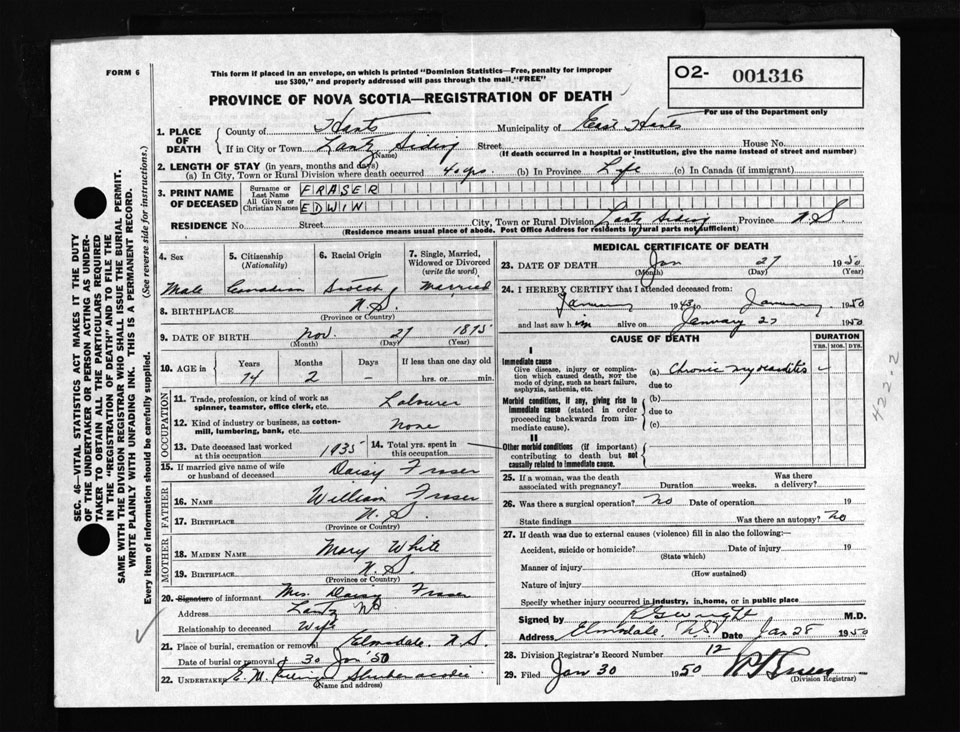 FORM 6
This form if placed in an envelope, on which is printed "Dominion Statistics—Free, penalty for improper
use $300," and properly addressed will pass through the mail "FREE"
O2- 001316
For use of the Department only
PROVINCE OF NOVA SCOTIA—REGISTRATION OF DEATH
1. PLACE OF DEATH
County of Hants Municipality of East Hants
If in City or Town Lantz Siding Street House No.
(Name) (If death occurred in a hospital or institution, give the name instead of street and number)
2. LENGTH OF STAY (in years, months and days)
(a) In City, Town or Rural Division where death occurred 40 yrs. (b) In Province Life (c) In Canada (if immigrant)
3. PRINT NAME OF DECEASED
Surname or Last Name FRASER
All Given or Christian Names EDWIN
RESIDENCE No. Street City, Town or Rural Division Lantz Siding Province N.S.
(Residence means usual place of abode. Post Office Address for residents in rural parts not sufficient)
4. Sex 5. Citizenship (Nationality) 6. Racial Origin 7. Single, Married, Widowed or Divorced (write the word)
Male Canadian Scotch Married
8. BIRTHPLACE N.S.
(Province or Country)
9. DATE OF BIRTH Nov. 27 1875
(Month) (Day) (Year)
10. AGE in Years Months Days If less than one day old
74 2 – hrs. or min.
OCCUPATION
11. Trade, profession, or kind of work as spinner, teamster, office clerk, etc. Labourer
12. Kind of industry or business, as cotton-mill, lumbering, bank, etc. None
13. Date deceased last worked at this occupation 1935 14. Total yrs. spent in this occupation
15. If married give name of wife or husband of deceased Daisy Fraser
FATHER
16. NAME William Fraser
17. BIRTHPLACE N.S.
(Province or Country)
MOTHER
18. MAIDEN NAME Mary White
19. BIRTHPLACE N.S.
(Province or Country)
20. Signature of informant Mrs. Daisy Fraser
Address Lantz NS
Relationship to deceased Wife
21. Place of burial, cremation or removal Elmsdale, N.S.
Date of burial or removal 30 Jan '50
22. UNDERTAKER E. M. Shubenacadie
(Name and address)
MEDICAL CERTIFICATE OF DEATH
23. DATE OF DEATH Jan 27 1950
(Month) (Day) (Year)
24. I HEREBY CERTIFY that I attended deceased from:
January 1943 to January 1950
and last saw him alive on January 27 1950
CAUSE OF DEATH DURATION
YRS. MOS. DYS.
I
Immediate cause
Give disease, injury or complication which caused death, NOT the mode of dying, such as heart failure, asphyxia, asthenia, etc.
(a) Chronic myocarditis
due to
Morbid conditions, if any, giving rise to immediate cause (stated in order proceeding backwards from immediate cause).
(b)
due to
(c)
II
Other morbid conditions (if important) contributing to death but not causally related to immediate cause.
422-2
25. If a woman, was the death associated with pregnancy? Duration weeks. Was there a delivery?
26. Was there a surgical operation? No Date of operation 19
State findings Was there an autopsy? No
27. If death was due to external causes (violence) fill in also the following:—
Accident, suicide or homicide? Date of injury 19
(State which)
Manner of injury
(How sustained)
Nature of injury
Specify whether injury occurred in industry, in home, or in public place
Signed by M.D.
Address Elmsdale, NS Date Jan 28 1950
28. Division Registrar's Record Number 12
29. Filed Jan 30 1950
(Division Registrar)
SEC. 46—VITAL STATISTICS ACT MAKES IT THE DUTY
OF THE UNDERTAKER OR PERSON ACTING AS UNDER-
TAKER TO OBTAIN ALL THE PARTICULARS REQUIRED
IN THE "REGISTRATION OF DEATH" AND TO FILE THE
SAME WITH THE DIVISION REGISTRAR WHO SHALL ISSUE THE BURIAL PERMIT.
WRITE PLAINLY WITH UNFADING INK. THIS IS A PERMANENT RECORD.
Every item of information should be carefully supplied. (See reverse side for instructions.)